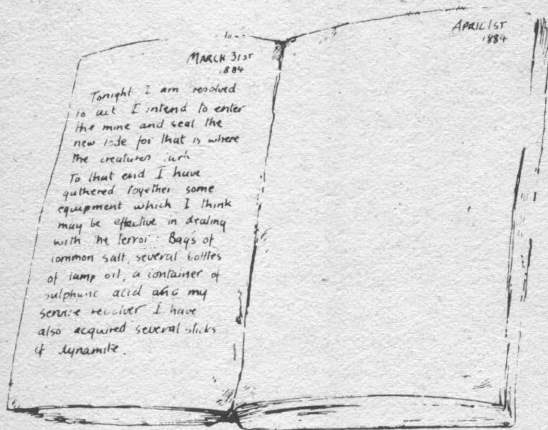 MARCH 31ST
1884
Tonight I am resolved
to act I intend to enter
the mine and seal the
new lode for that is where
the creatures lurk
To that end I have
gathered together some
equipment which I think
may be effective in dealing
with the terror: Bags of
common salt, several bottles
of lamp oil, a container of
sulphuric acid and my
service revolver I have
also acquired several sticks
of dynamite.
APRIL 1ST
1884